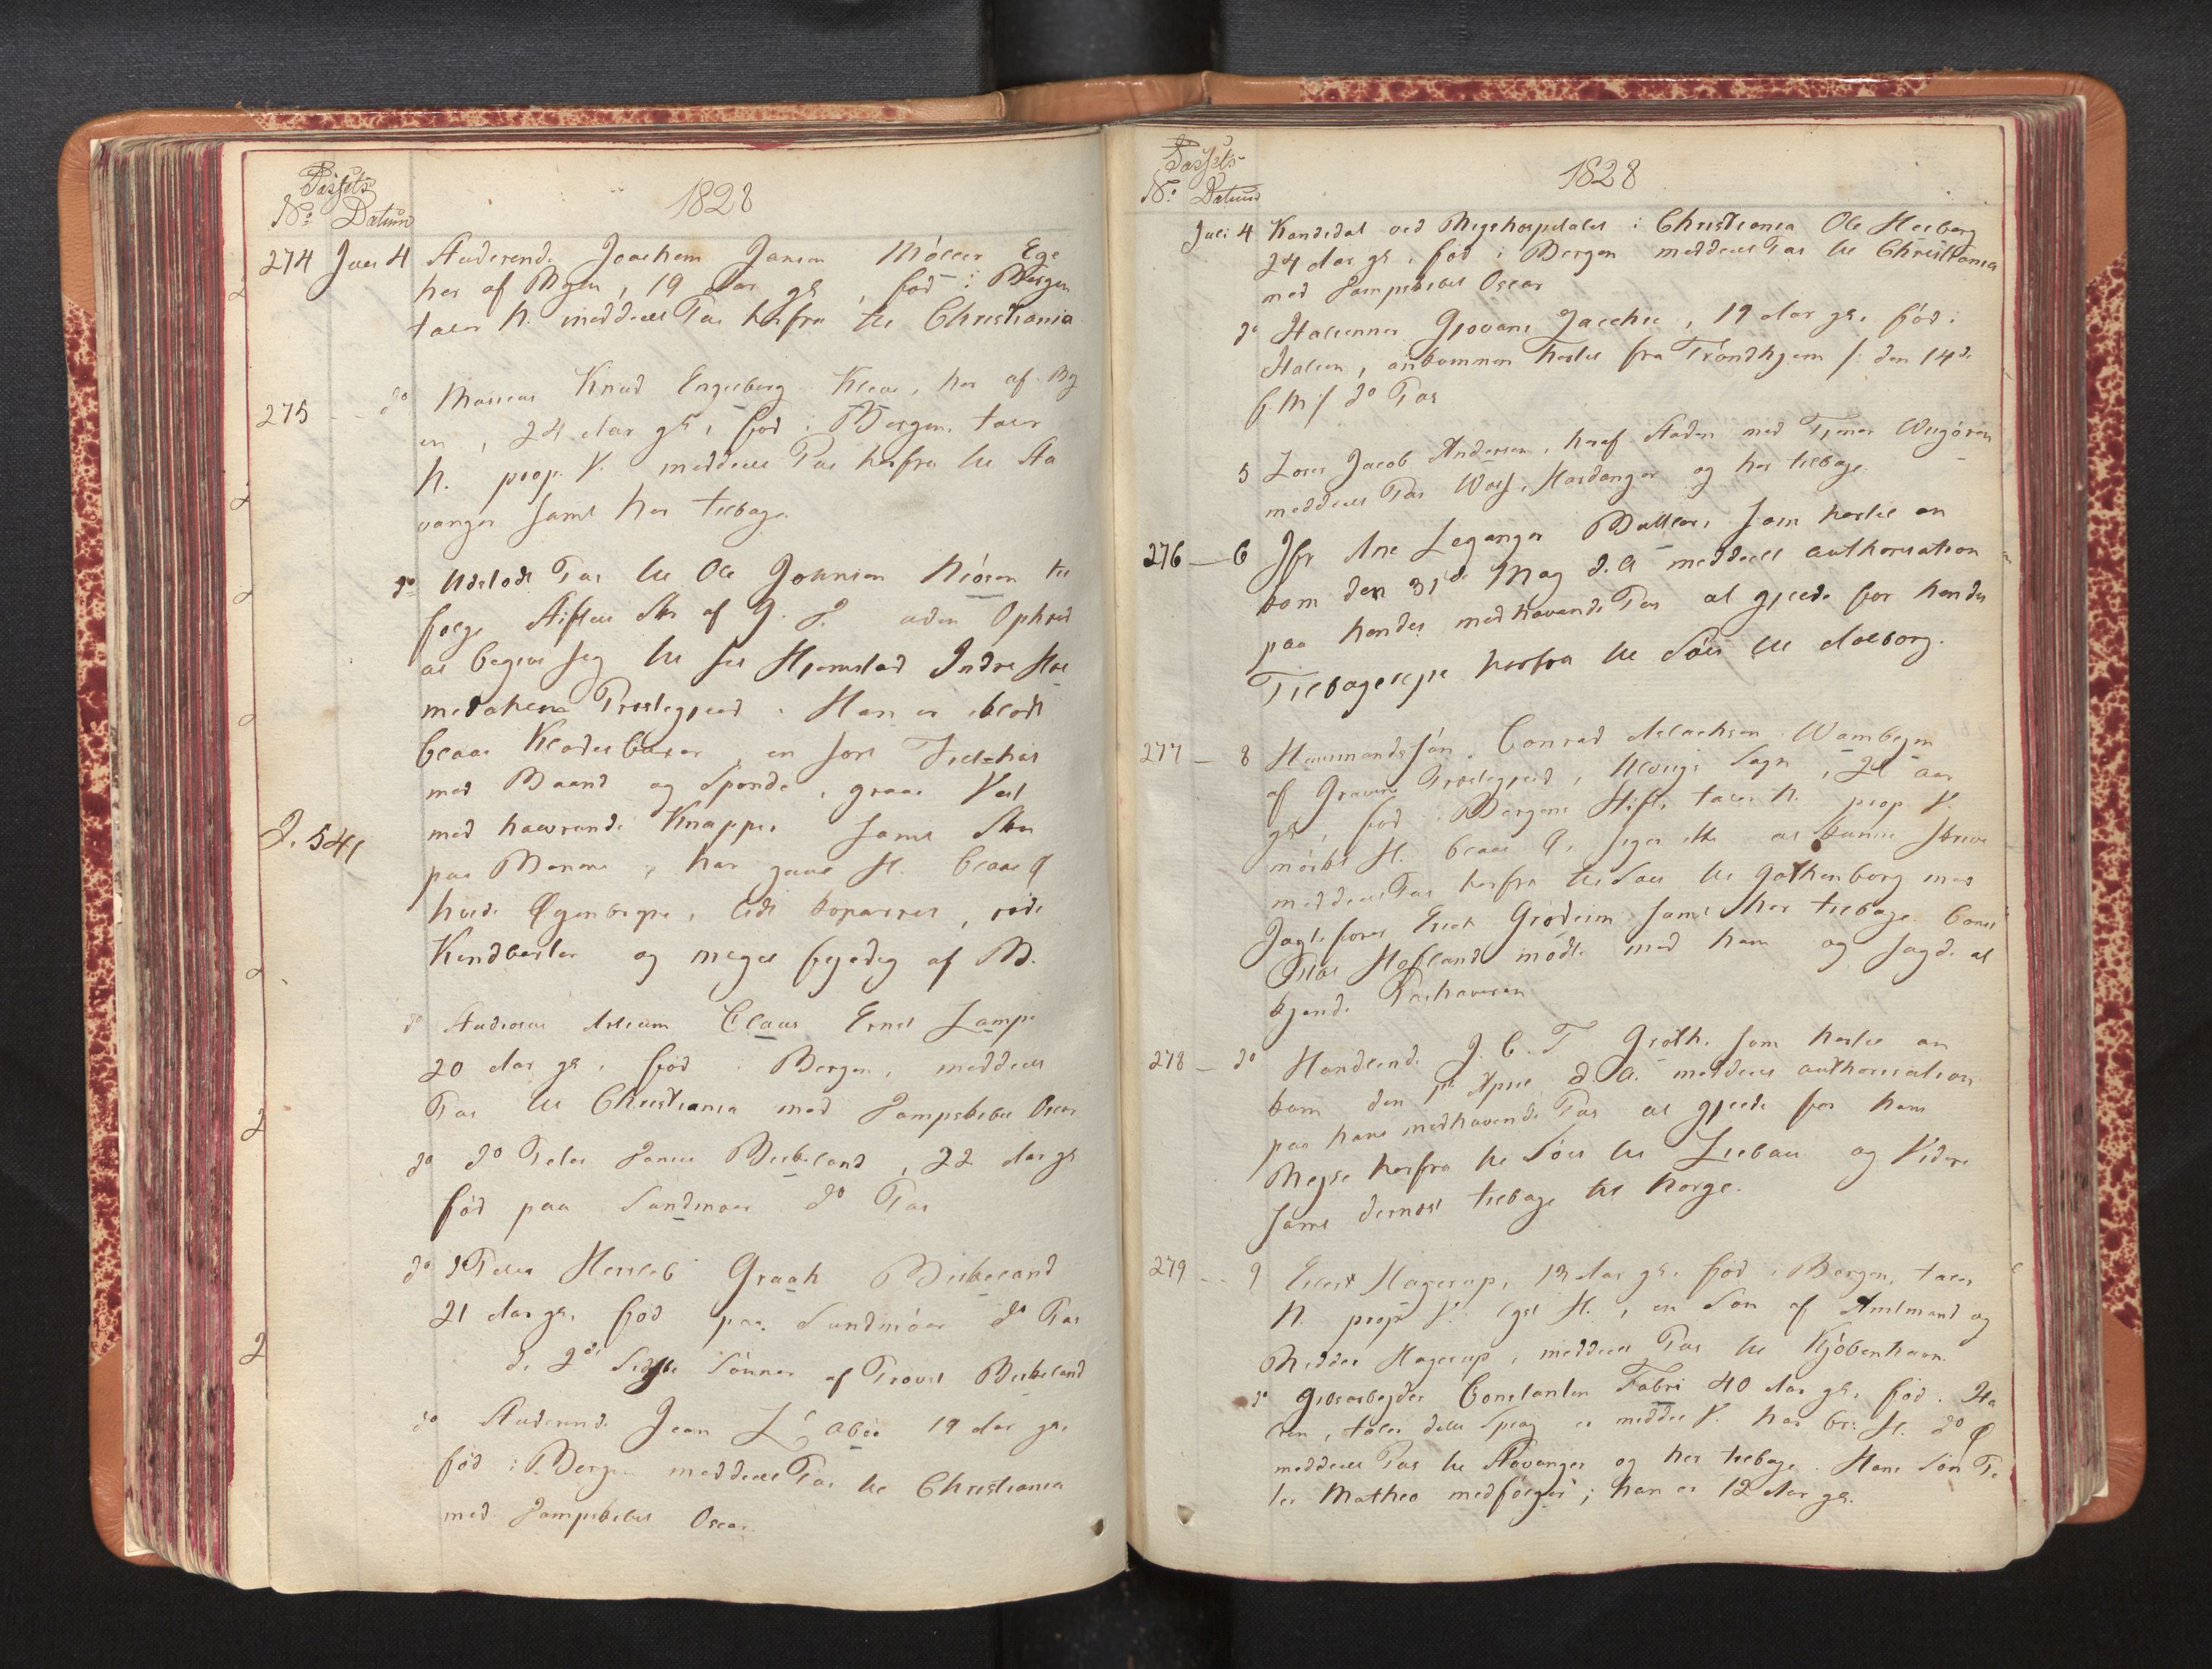 Passets
No: Datum
1828
274 Juli 4 Studerende Joachem Jansen Möller Ege
her af Byen, 19 Aar gl, fød i Bergen
taler N. meddeelt Pas herfra til Christiania
275 - do Knud Engelberg her af By
en, 24 Aar gl, fød i Bergen, taler
N. prop. V. meddeelt Pas herfra til Sta
vanger samt her tilbage.
do Udstedt Pas til Ole Johnsen til
følge Stiftets af G. D. uden Ophold
at begive sig til sit Hjemstad Indre Hol
medahlens Præstegjeld. Han er iklædt
blaae Klædesbuxer, en sort Filthat
med Baand og Spænde, graae Vest
J. 541
med hvide Knapper samt Skoe
paa Benene, har guul H. blaae Ø
hvide Øyenbryn, lidt koparret, røde
Kindbeder og meget af B.
do Studiosus Claus Ernst Lampe
20 Aar gl, fød i Bergen, meddeelt
Pas til Christiania med Dampskibet Oscar
do do Peter Daniel Birkeland, 22 Aar gl
fød paa Søndmøer do Pas
do do Peter Hersleb Graah Birkeland
21 Aar gl, fød paa Sundmöer do Pas
de 2de Sidste Sønner af Provst Birkeland
do Studerende Jean L'Abée 19 Aar gl,
fød i Bergen meddeelt Pas til Christiania
med Dampskibet Oscar.
Passets
No: Datum
1828
Juli 4 Kandidat ved Rigshospitalet i Christiania Ole Heiberg
24 Aar gl, fød i Bergen meddeelt Pas til Christiania
med Dampskibet Oscar
do Italiener Giovani Jacchii, 19 Aar gl, fød i
Italien, ankommen hertil fra Trondhjem /: den 14de
f. M :/ do Pas
5 Jacob Andersen, heraf Staden med Tjener
meddeelt Pas til Hardanger og her tilbage.
276 - 6 Jfr Ane Leganger som hertil an
kom den 31de May d. A meddeelt authorisation
paa hendes medhavende Pas at gjælde for hendes
Tilbagereyse herfra til Søes til Aalborg.
277 - 8 Conrad Aslachsen Wambejm
af Gravens Præstegjeld, Ulvigs Sogn, 21 Aar
gl, fød i Bergens Stift, taler N. prop. V.
mörkt H. blaae Ø, siger ikke at kunne skrive
meddeelt Pas herfra til Søes til Gothenborg med
Jagtefører Erich Grødeim samt her tilbage.
Hofland mödte med ham og sagde at
kjende Pashaveren
278 - do Handlende J. C. T. Groth, som hertil an
kom den 1ste April d. A. meddeelt authorisation
paa hans medhavende Pas at gjælde for hans
Reyse herfra til Søes til Liebau og Videre
samt dernæst tilbage til Norge.
279 - 9 Eilert Hagerup, 13 Aar gl, fød i Bergen, taler
N. prop V. lyst H., en Søn af Amtmand og
Ridder Hagerup, meddeelt Pas til Kjöbenhavn.
do Gibsarbejder Constantin Fabri 40 Aar gl, fød i Ita
lien, taler dette Sprog er middel V. har br: H. do Ø
meddeelt Pas til Stavanger og her tilbage. Hans Søn Pe
ter Matheo medfölger; han er 12 Aar gl.